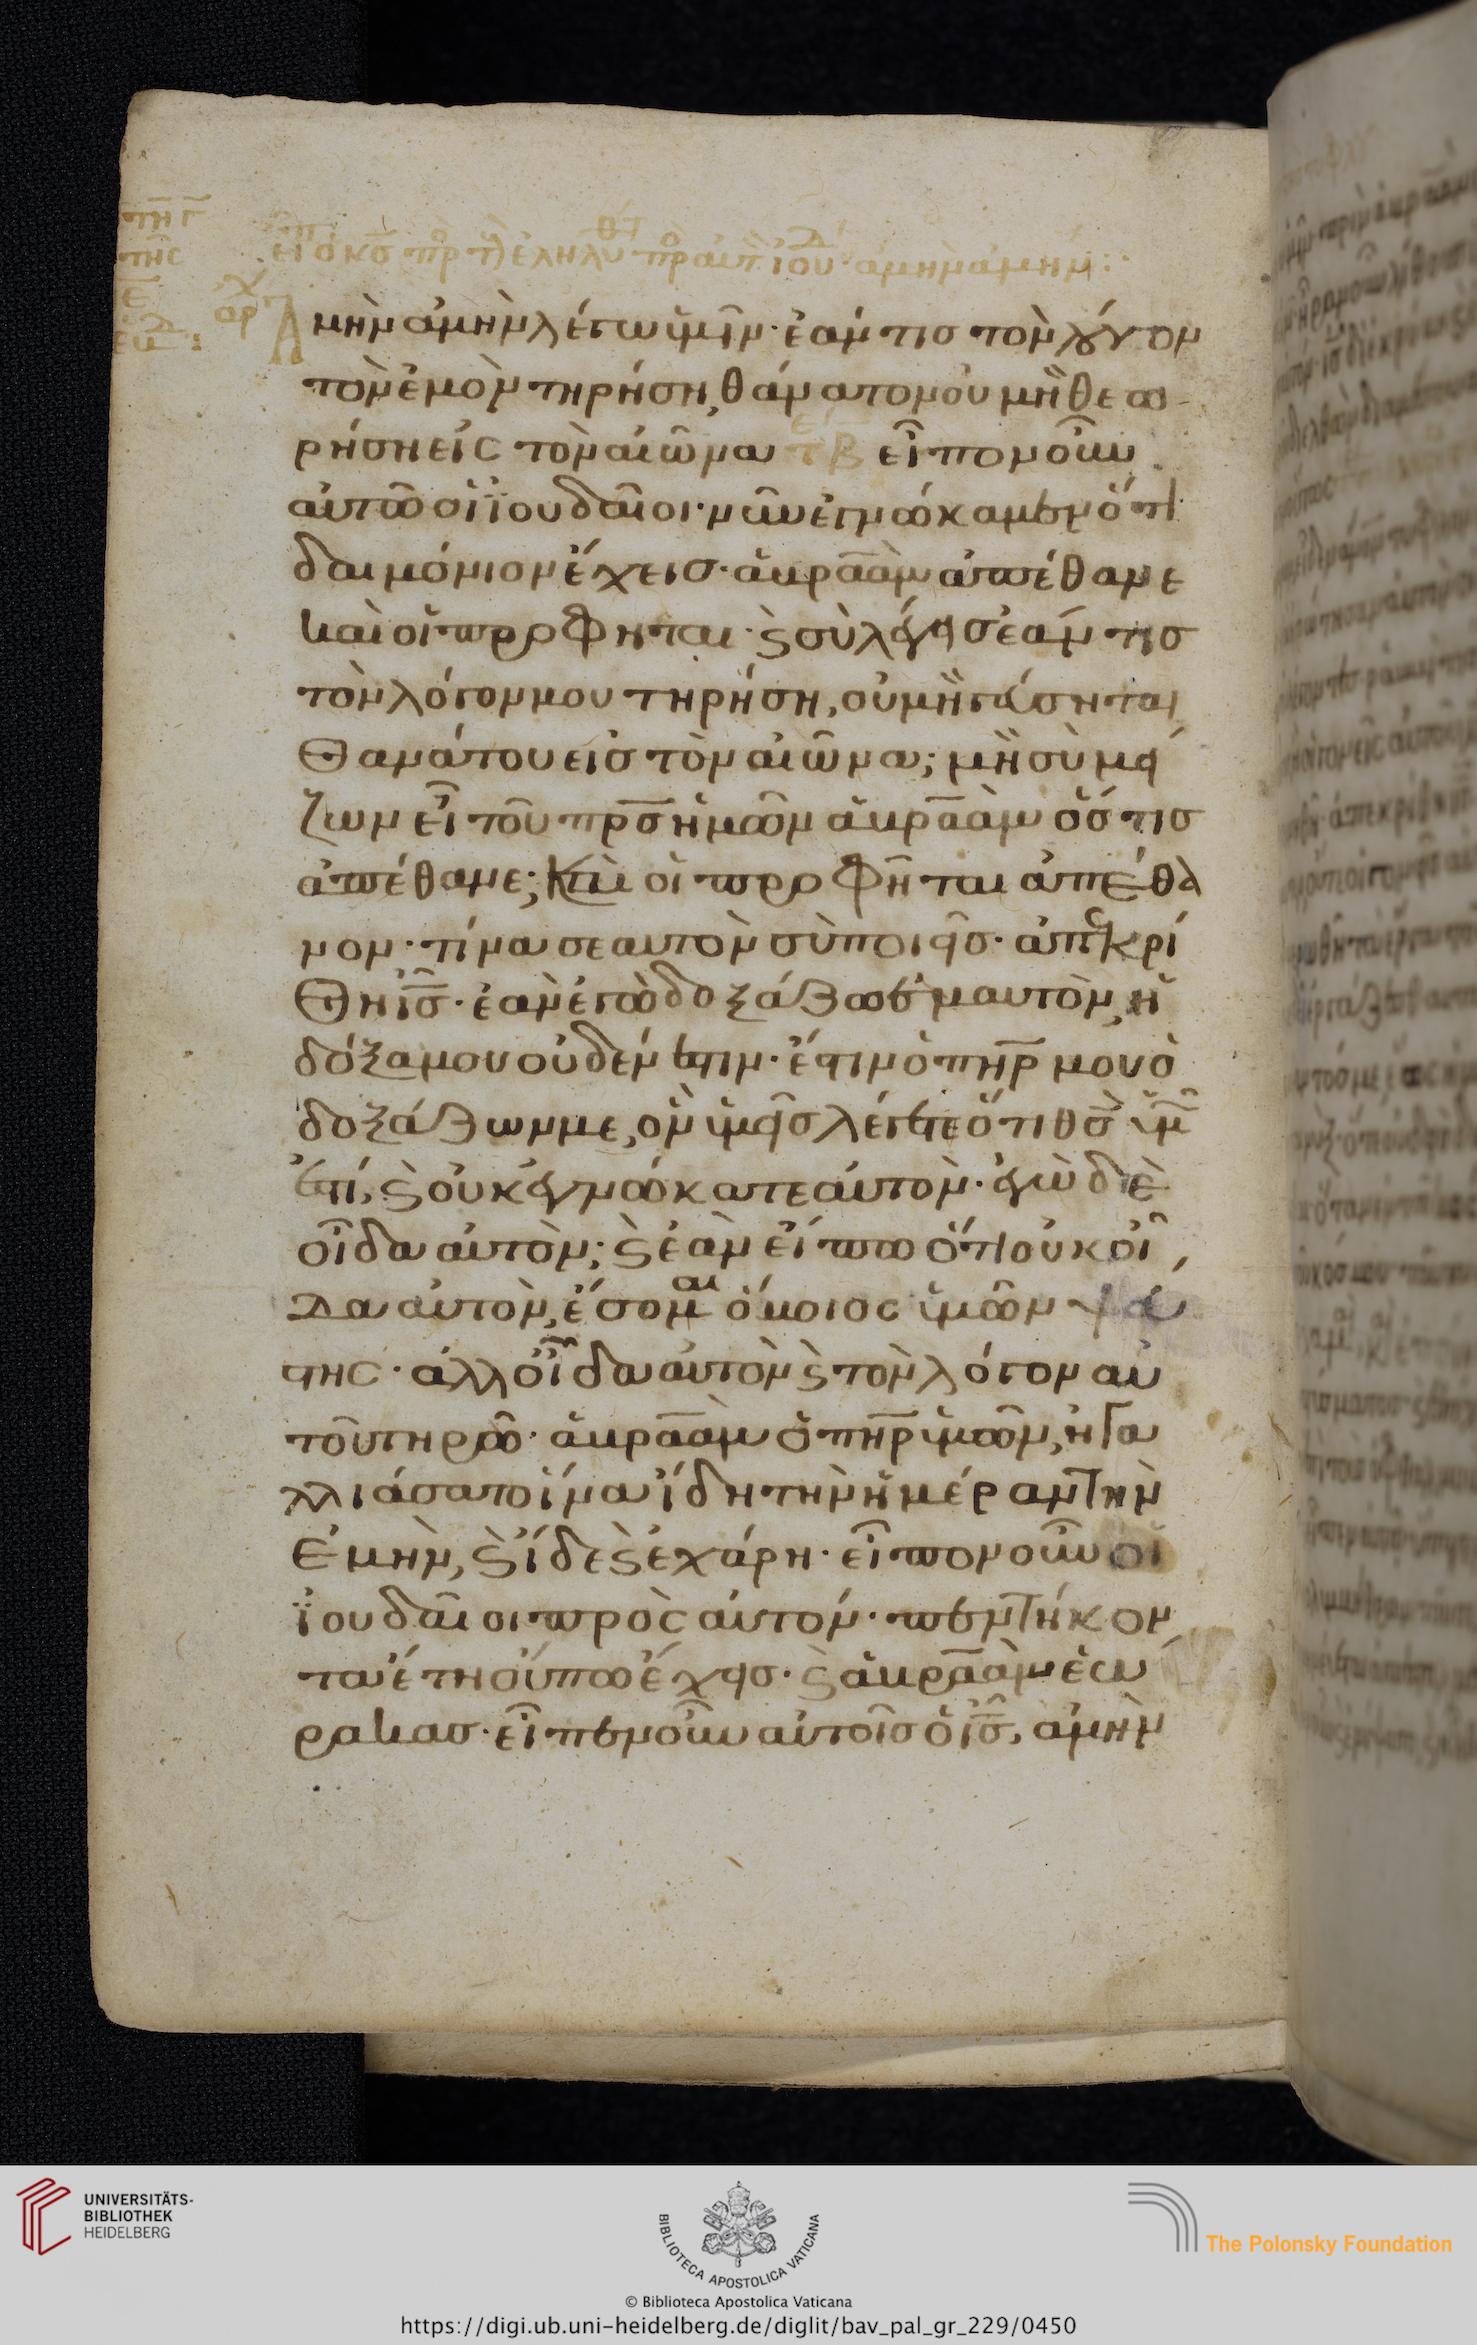 τῆ γ
τῆς
ε
εἶπεν ὁ κς πρ τ ἐληλυθ πρ αὐτ ἰουδ ἀμὴν ἀμήν:
ἀρχ
Ἀμὴν ἀμὴν λέγω ὑμῖν· ἐάν τις τὸν λόγον
τὸν ἐμὸν τηρήση, θάνατον οὐ μὴ θεω
ρήση εἰς τὸν αἰῶνα εἶπον οὖν
αὐτῶ οἱ ϊουδαῖοι· νῦν ἐγνώκαμεν ὅτι
δαιμόνιον ἔχεις· ἀβραὰμ ἀπέθανε
καὶ οἱ προφηται· ϗ σὺ λέγεις ἐάν τις
τὸν λόγον μου τηρήση, οὐ μὴ γεύσηται
θανάτου εἰς τὸν αἰῶνα; μὴ σὺ μεί
ζων εἶ τοῦ πρς ἡμῶν ἀβραὰμ ὅστις
ἀπέθανε; καὶ οἱ προφῆται ἀπέθα
νον· τίνα σεαυτὸν σὺ ποιεῖς· ἀπεκρί
θη ις· ἐὰν ἐγὼ δοξάζω ἐμαυτὸν, ἡ
δόξα μου οὐδέν ἐστιν· ἔστιν ὁ πηρ μου ὁ
δοξάζων με, ὃν ὑμεῖς λέγετε ὅτι θς ὑμῶν
ἐστί, ϗ οὐκ ἐγνώκατε αὐτὸν· ἐγὼ δὲ
οἶδα αὐτὸν; ϗ ἐὰν εἴπω ὅτι οὐκ οἶ
δα αὐτὸν, ἔσομαι ὅμοιος ὑμῶν ψεύ
στης· ἀλλ οἶδα αὐτὸν ϗ τὸν λόγον αὐ
τοῦ τηρῶ· ἀβραὰμ ὁ πηρ ὑμῶν, ἠγα
λλιάσατο ἵνα ἴδη τὴν ἡμέραν τὴν
ἐμὴν, ϗ ἴδε ϗ ἐχάρη· εἶπον οὖν οἱ
ϊουδαῖοι πρὸς αὐτόν· πεντήκον
τα ἔτη οὔπω ἔχεις· ϗ ἀβραὰμ ἑώ
ρακας· εἶπεν οὖν αὐτοῖς ὁ ις, ἀμὴν
UNIVERSITÄTS-
BIBLIOTHEK
HEIDELBERG
BIBLIOTECA APOSTOLICA VATICANA
The Polonsky Foundation
© Biblioteca Apostolica Vaticana
https://digi.ub.uni-heidelberg.de/diglit/bav_pal_gr_229/0450